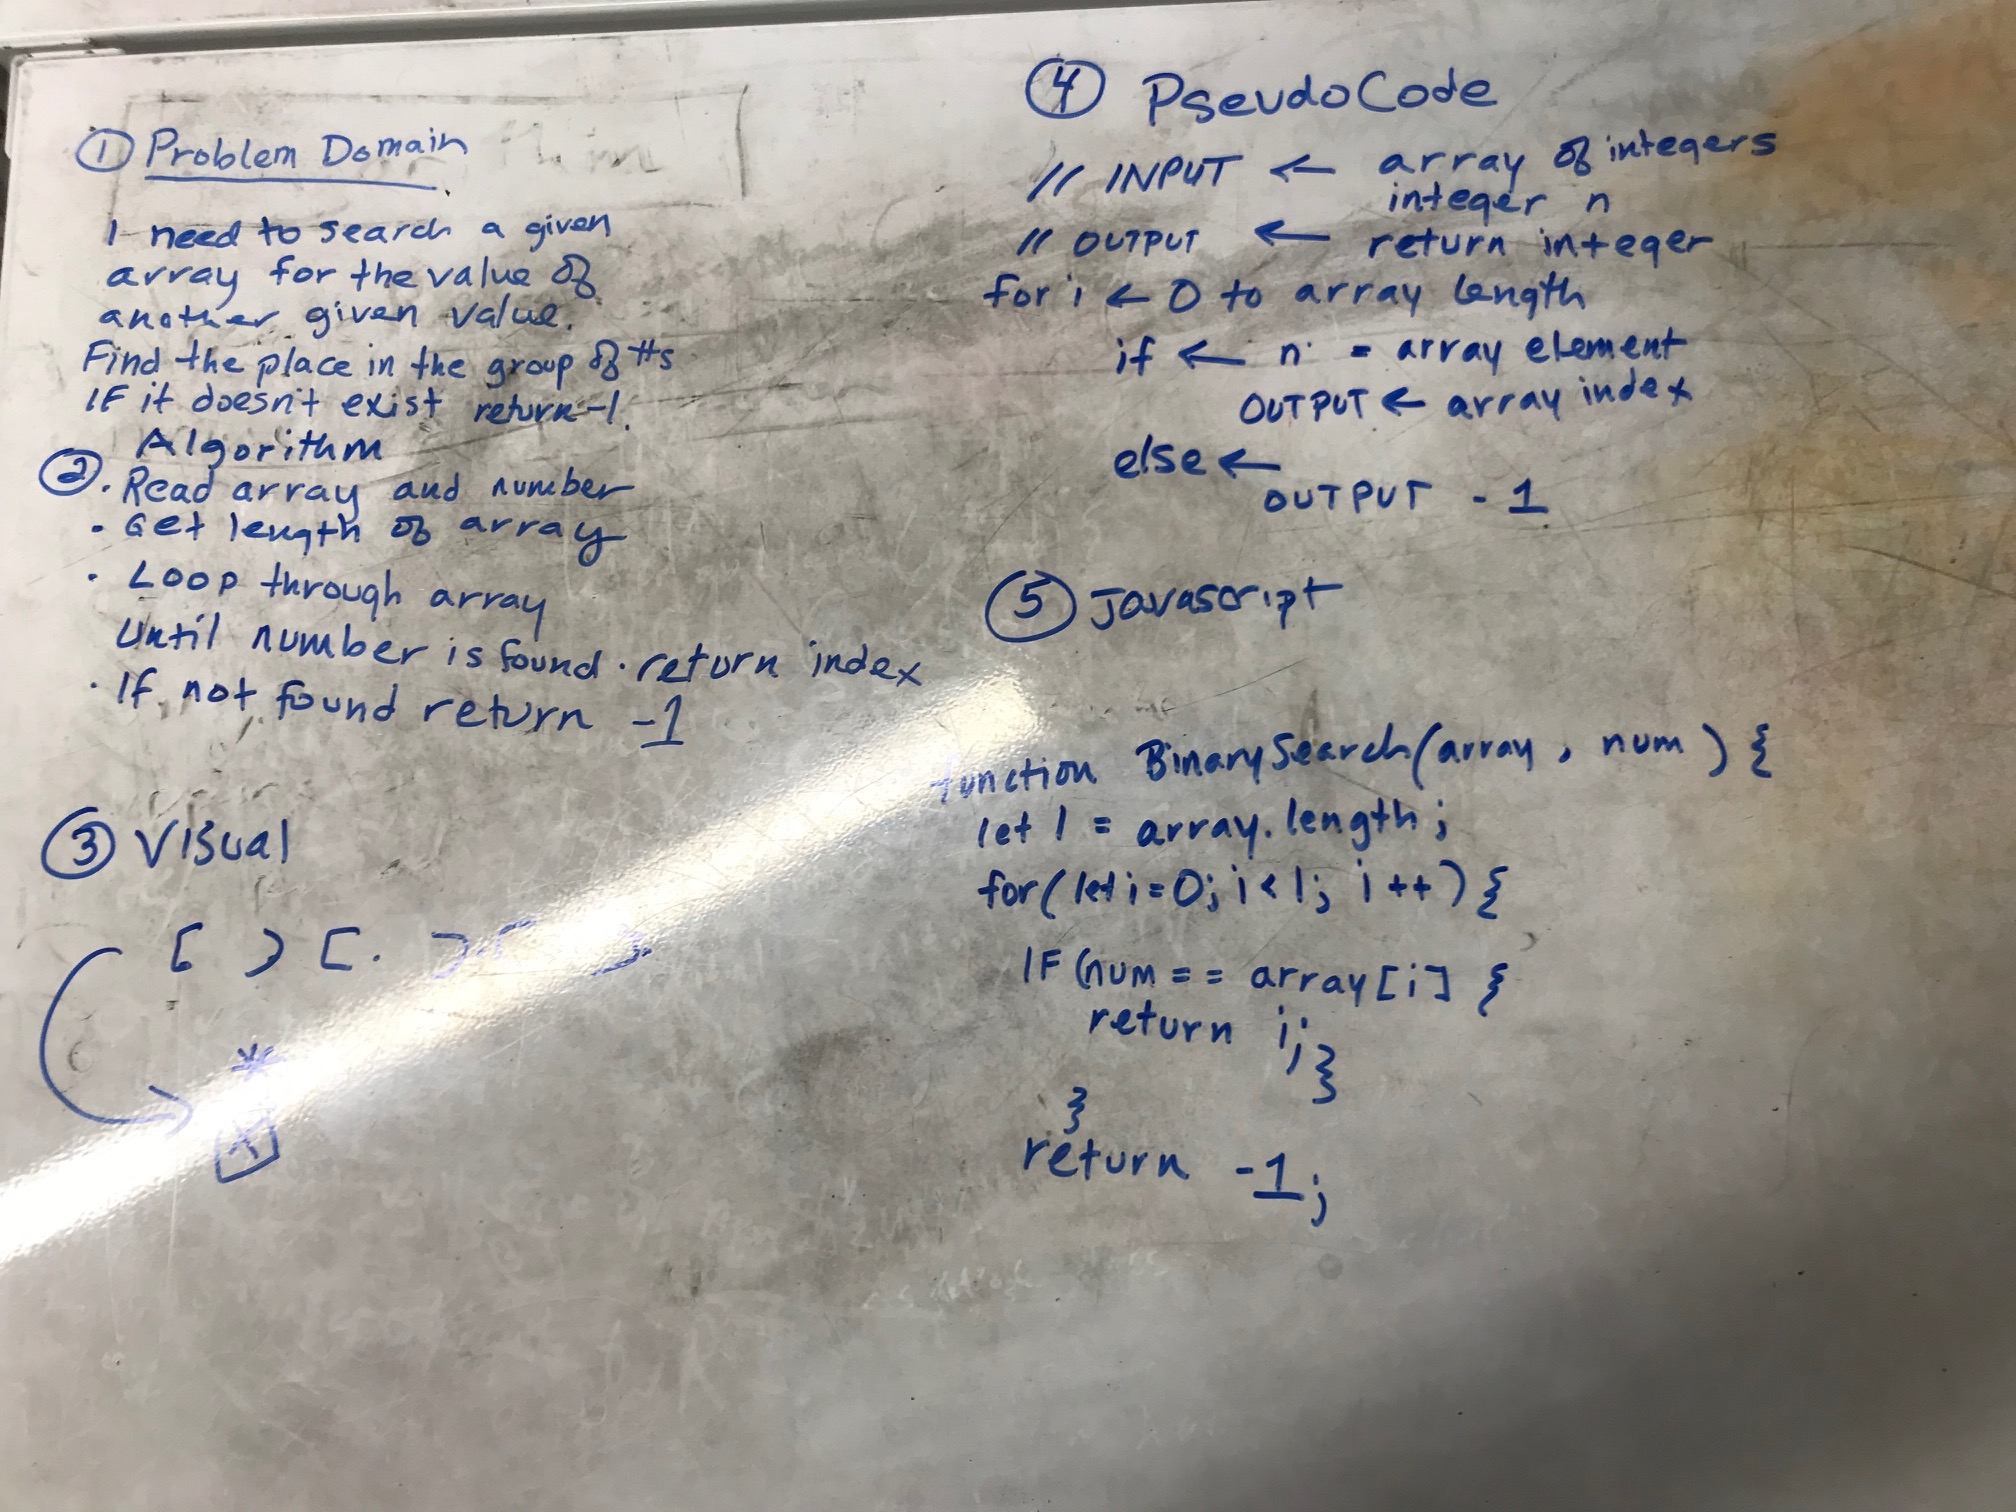 ① Problem Domain
I need to search a given
array for the value of
another given value.
Find the place in the group of #s
IF it doesn't exist return -1.
② Algorithm
. Read array and number
. Get length of array
. Loop through array
Until number is found . return index
. If not found return -1
③ Visual
[ ] [ . ] [ ]
*
X
④ PseudoCode
// INPUT ← array of integers
integer n
// OUTPUT ← return integer
for i ← 0 to array length
if ← n = array element
OUTPUT ← array index
else ←
OUTPUT - 1
⑤ Javascript
function BinarySearch(array, num) {
let l = array.length;
for(let i=0; i<l; i++) {
IF (num == array[i] {
return i; }
}
return -1;